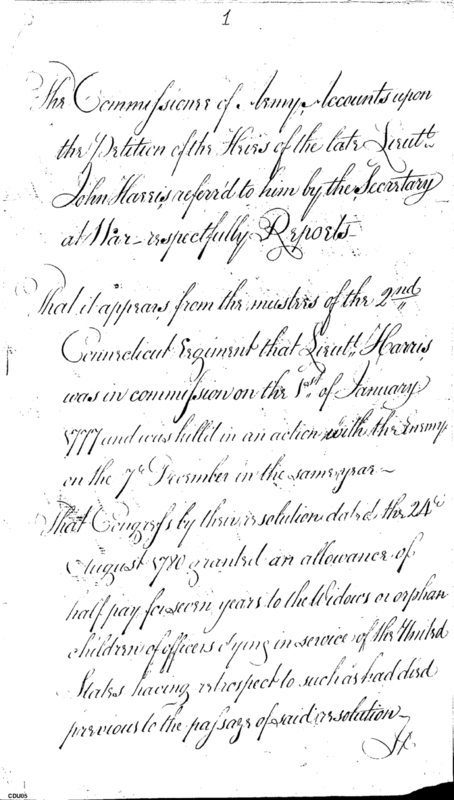 1
The Commissioner of Army Accounts upon
the Petition of the Heirs of the late Lieutt.
John Harris referr'd to him by the Secretary
at War - respectfully Reports
That it appears from the musters of the 2nd
Connecticut Regiment that Lieutt. Harris
was in commission on the 1st. of January
1777 and was kill'd in an action with the Enemy
on the 7th December in the same year -
That Congress by their resolution dated the 24th
August 1780 granted an allowance of
half pay for seven years to the Widows or orphan
children of officers dying in service of the United
States having retrospect to such as had died
previous to the passage of said resolution
CDU05